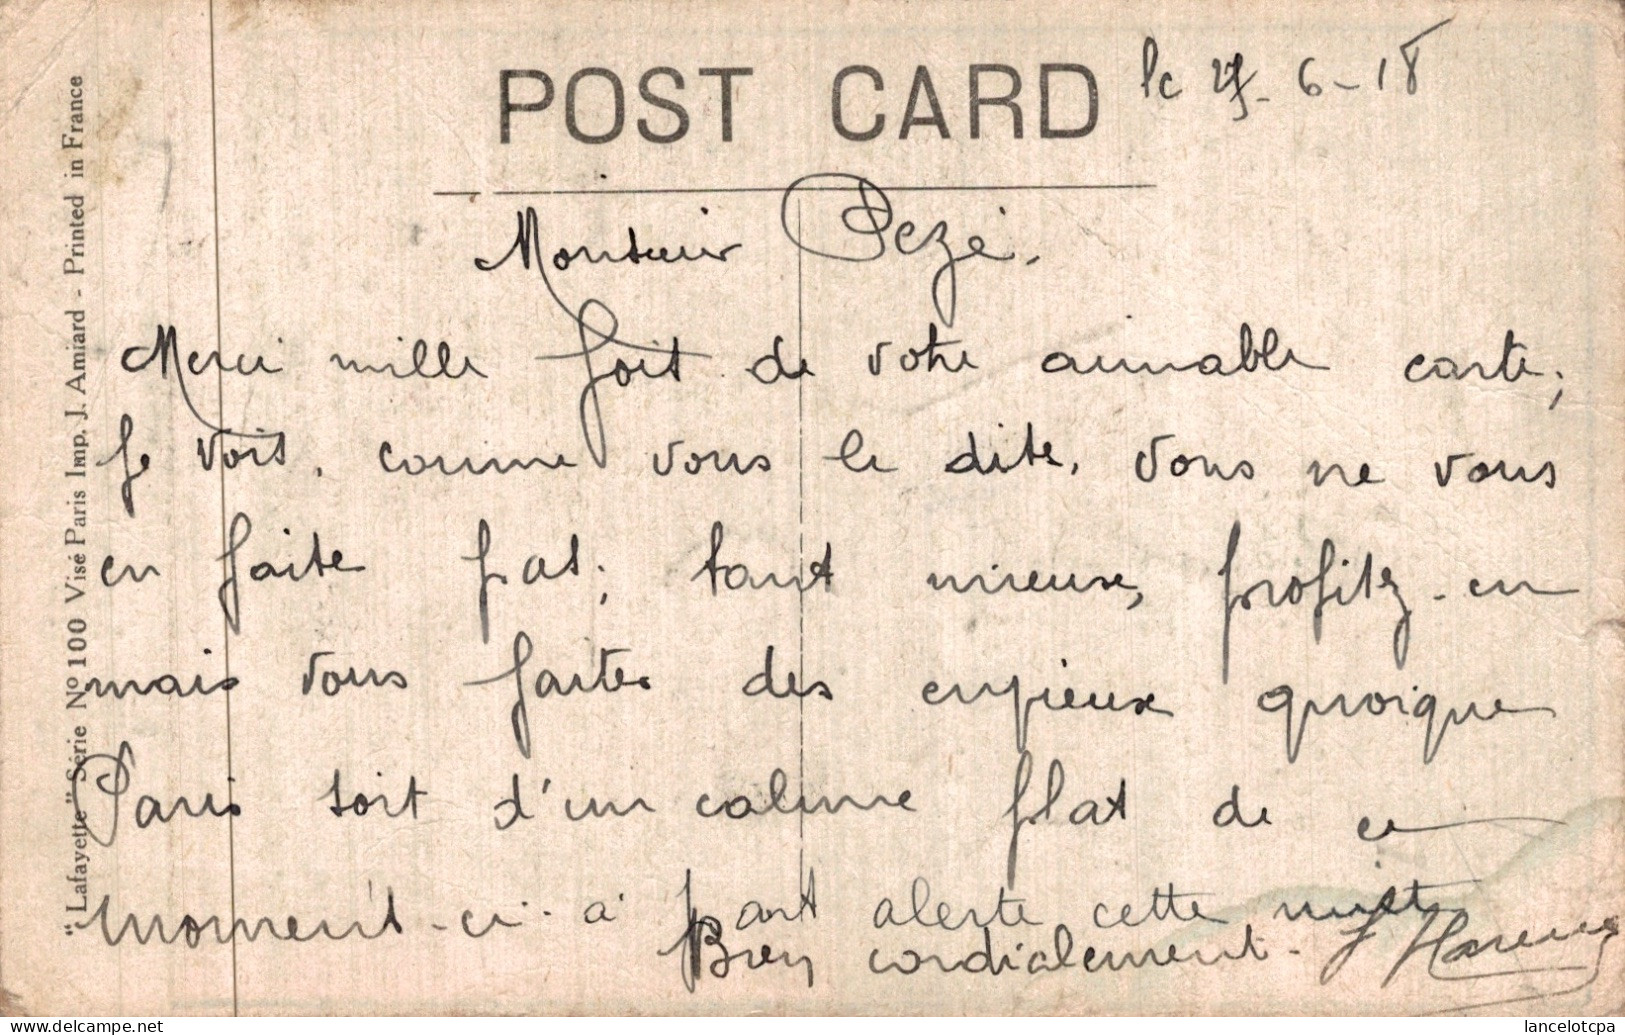 POST CARD
le 27-6-18
Monsieur Pezé.
Merci mille fois de votre aimable carte;
Je vois, comme vous le dite, vous ne vous
en faite pas; tant mieux, profitez-en
mais vous faites des envieux quoique
Paris soit d'un calme plat de ce
moment-ci à part alerte cette nuit
Bien cordialement-
"Lafayette" Série Nº 100 Visé Paris Imp. J. Amiard - Printed in France
lancelotcpa